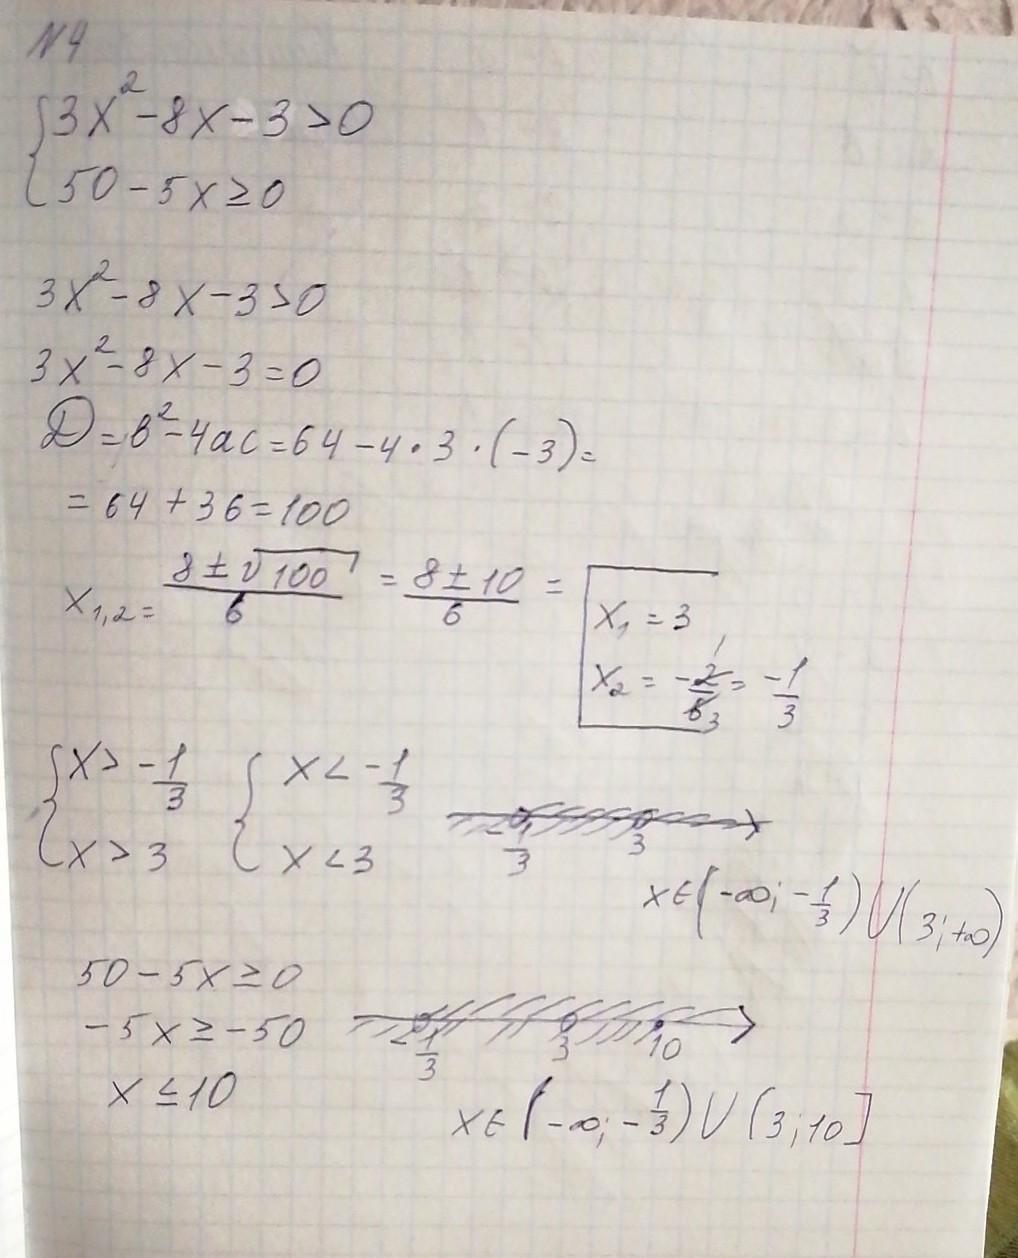 N4
{3x²-8x-3>0
{50-5x≥0
3x²-8x-3>0
3x²-8x-3=0
D=b²-4ac=64-4·3·(-3)=
=64+36=100
x₁,₂= (8±√100)/6 = (8±10)/6 = [x₁=3, x₂=-2/6₃=-1/3
{x>-1/3 {x<-1/3
{x>3 {x<3
-1/3 3
x∈(-∞;-1/3)∪(3;+∞)
50-5x≥0
-5x≥-50
x≤10
-1/3 3 10
x∈(-∞;-1/3)∪(3;10]